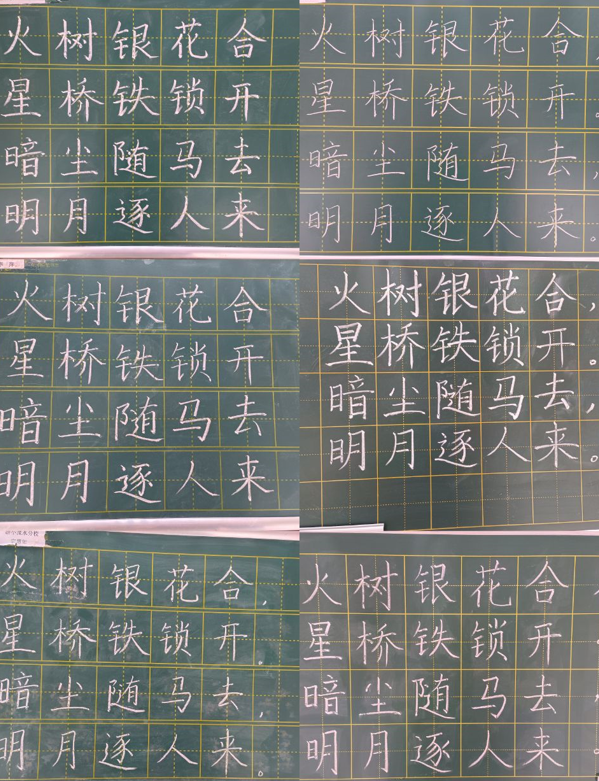 火树银花合
星桥铁锁开
暗尘随马去
明月逐人来
火树银花合,
星桥铁锁开。
暗尘随马去,
明月逐人来。
火树银花合
星桥铁锁开
暗尘随马去
明月逐人来
火树银花合,
星桥铁锁开。
暗尘随马去,
明月逐人来。
火树银花合,
星桥铁锁开。
暗尘随马去,
明月逐人来。
火树银花合,
星桥铁锁开。
暗尘随马去,
明月逐人来。